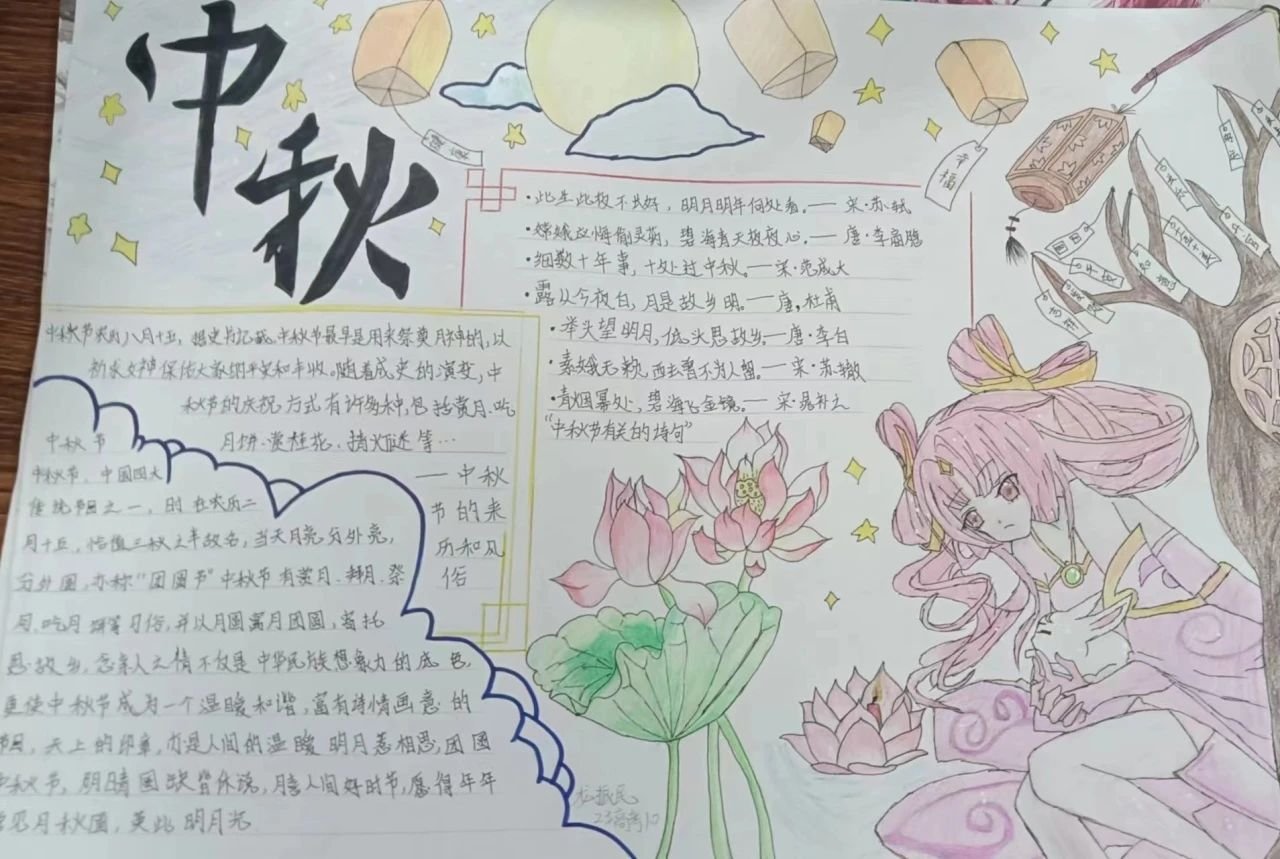 中秋
幸福
团圆
吉祥
·此生此夜不长好，明月明年何处看。——宋·苏轼
·嫦娥应悔偷灵药，碧海青天夜夜心。——唐·李商隐
·细数十年事，十处过中秋。——宋·范成大
·露从今夜白，月是故乡明。——唐，杜甫
·举头望明月，低头思故乡——唐·李白
·素娥无赖，西去曾不为人留。——宋·苏辙
·青烟幂处，碧海飞金镜。——宋·晁补之
“中秋节有关的诗句”
中秋节农历八月十五，据史书记载，中秋节最早是用来祭奠月神的，以
祈求女神保佑大家的平安和丰收。随着历史的演变，中
秋节的庆祝方式有许多种，包括赏月、吃
月饼、赏桂花、猜灯谜等…
——中秋
节的来
历和风
俗
中秋节
中秋节，中国四大
传统节日之一，时在农历二
月十五，恰值三秋之半故名，当天月亮分外亮，
分外圆，亦称“团圆节”中秋节有赏月、拜月、祭
月、吃月饼等习俗，并以月圆寓月团圆，寄托
思故乡，念亲人之情不仅是中华民族想象力的底色，
更使中秋节成为一个温暖和谐，富有诗情画意的
节日，天上的印章，亦是人间的温暖 明月惹相思，团圆
中秋节，阴晴圆缺皆休说，月喜人间好时节，愿得年年
常见月秋圆，莫此明月光